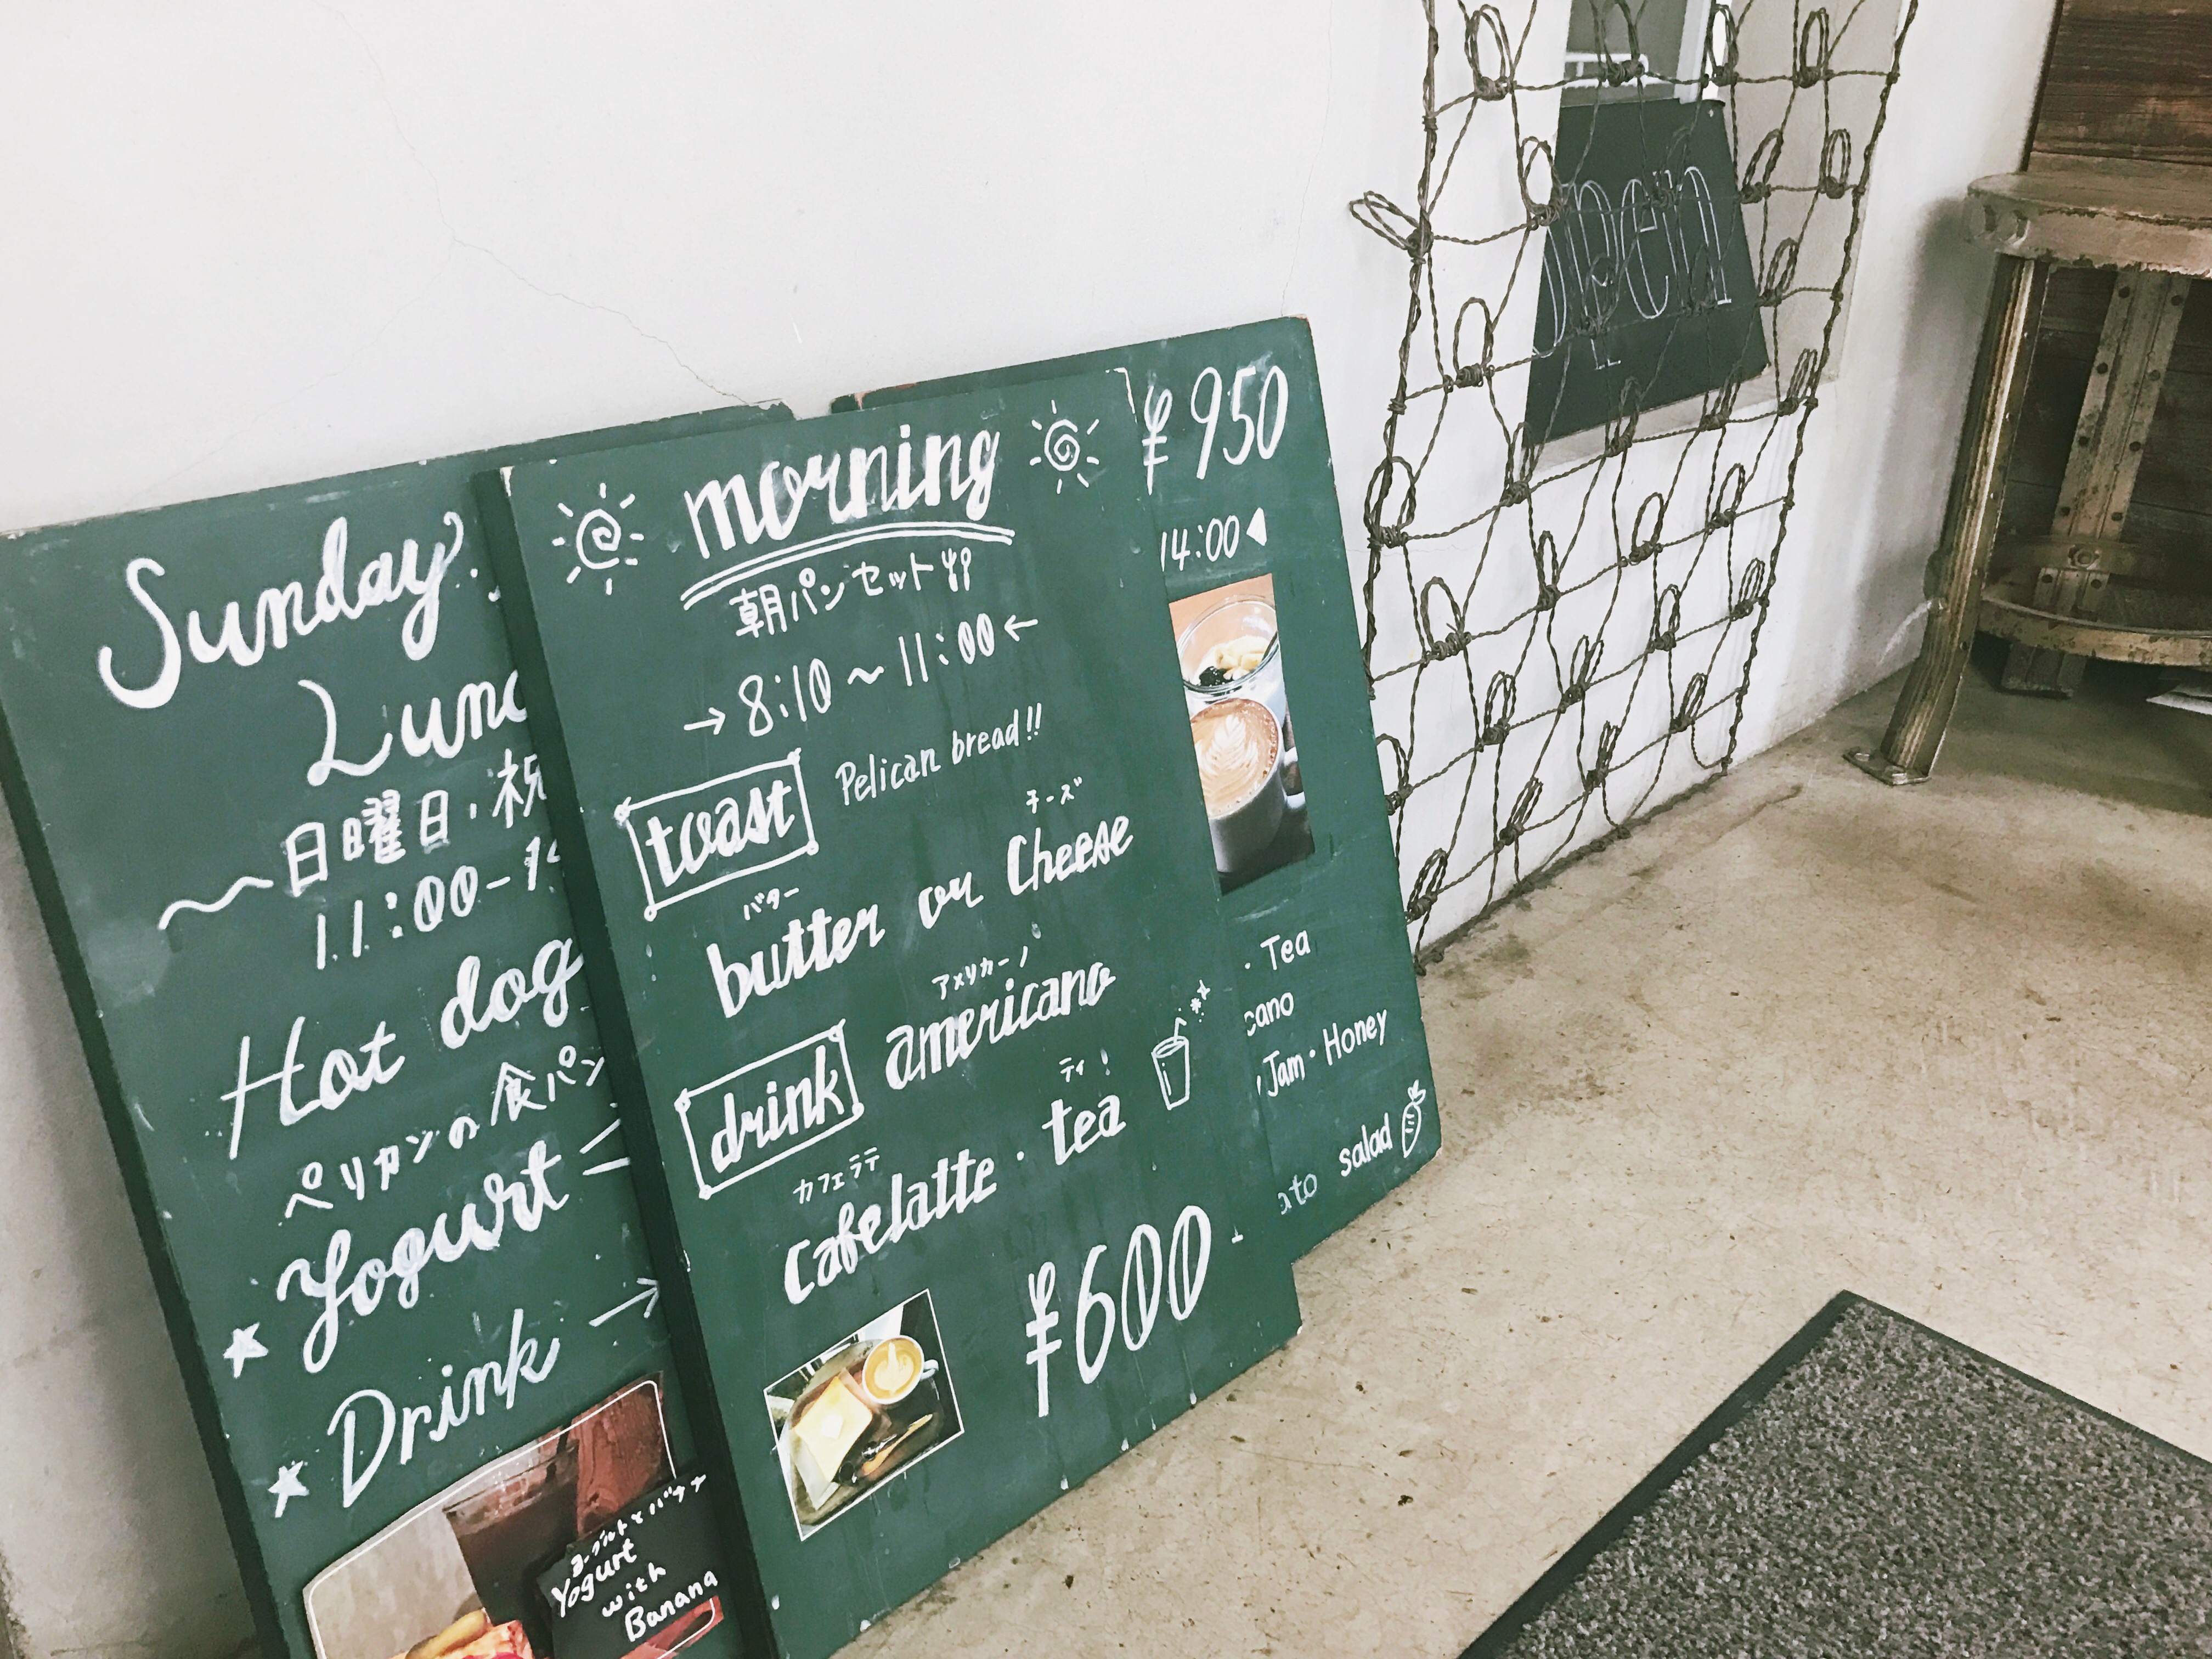 Sunday
日曜日・祝
11:00-1
Hot dog
ペリカンの食パン
Yogurt
Drink →
ヨーグルトとバナナ
Yogurt
with
Banana
morning
朝パンセット
→ 8:10 〜 11:00 ←
toast Pelican bread!!
バター チーズ
butter or Cheese
アメリカーノ
drink americano
カフェラテ ティ
Cafelatte・tea
¥600
¥950
14:00
・Tea
Jam・Honey
salad